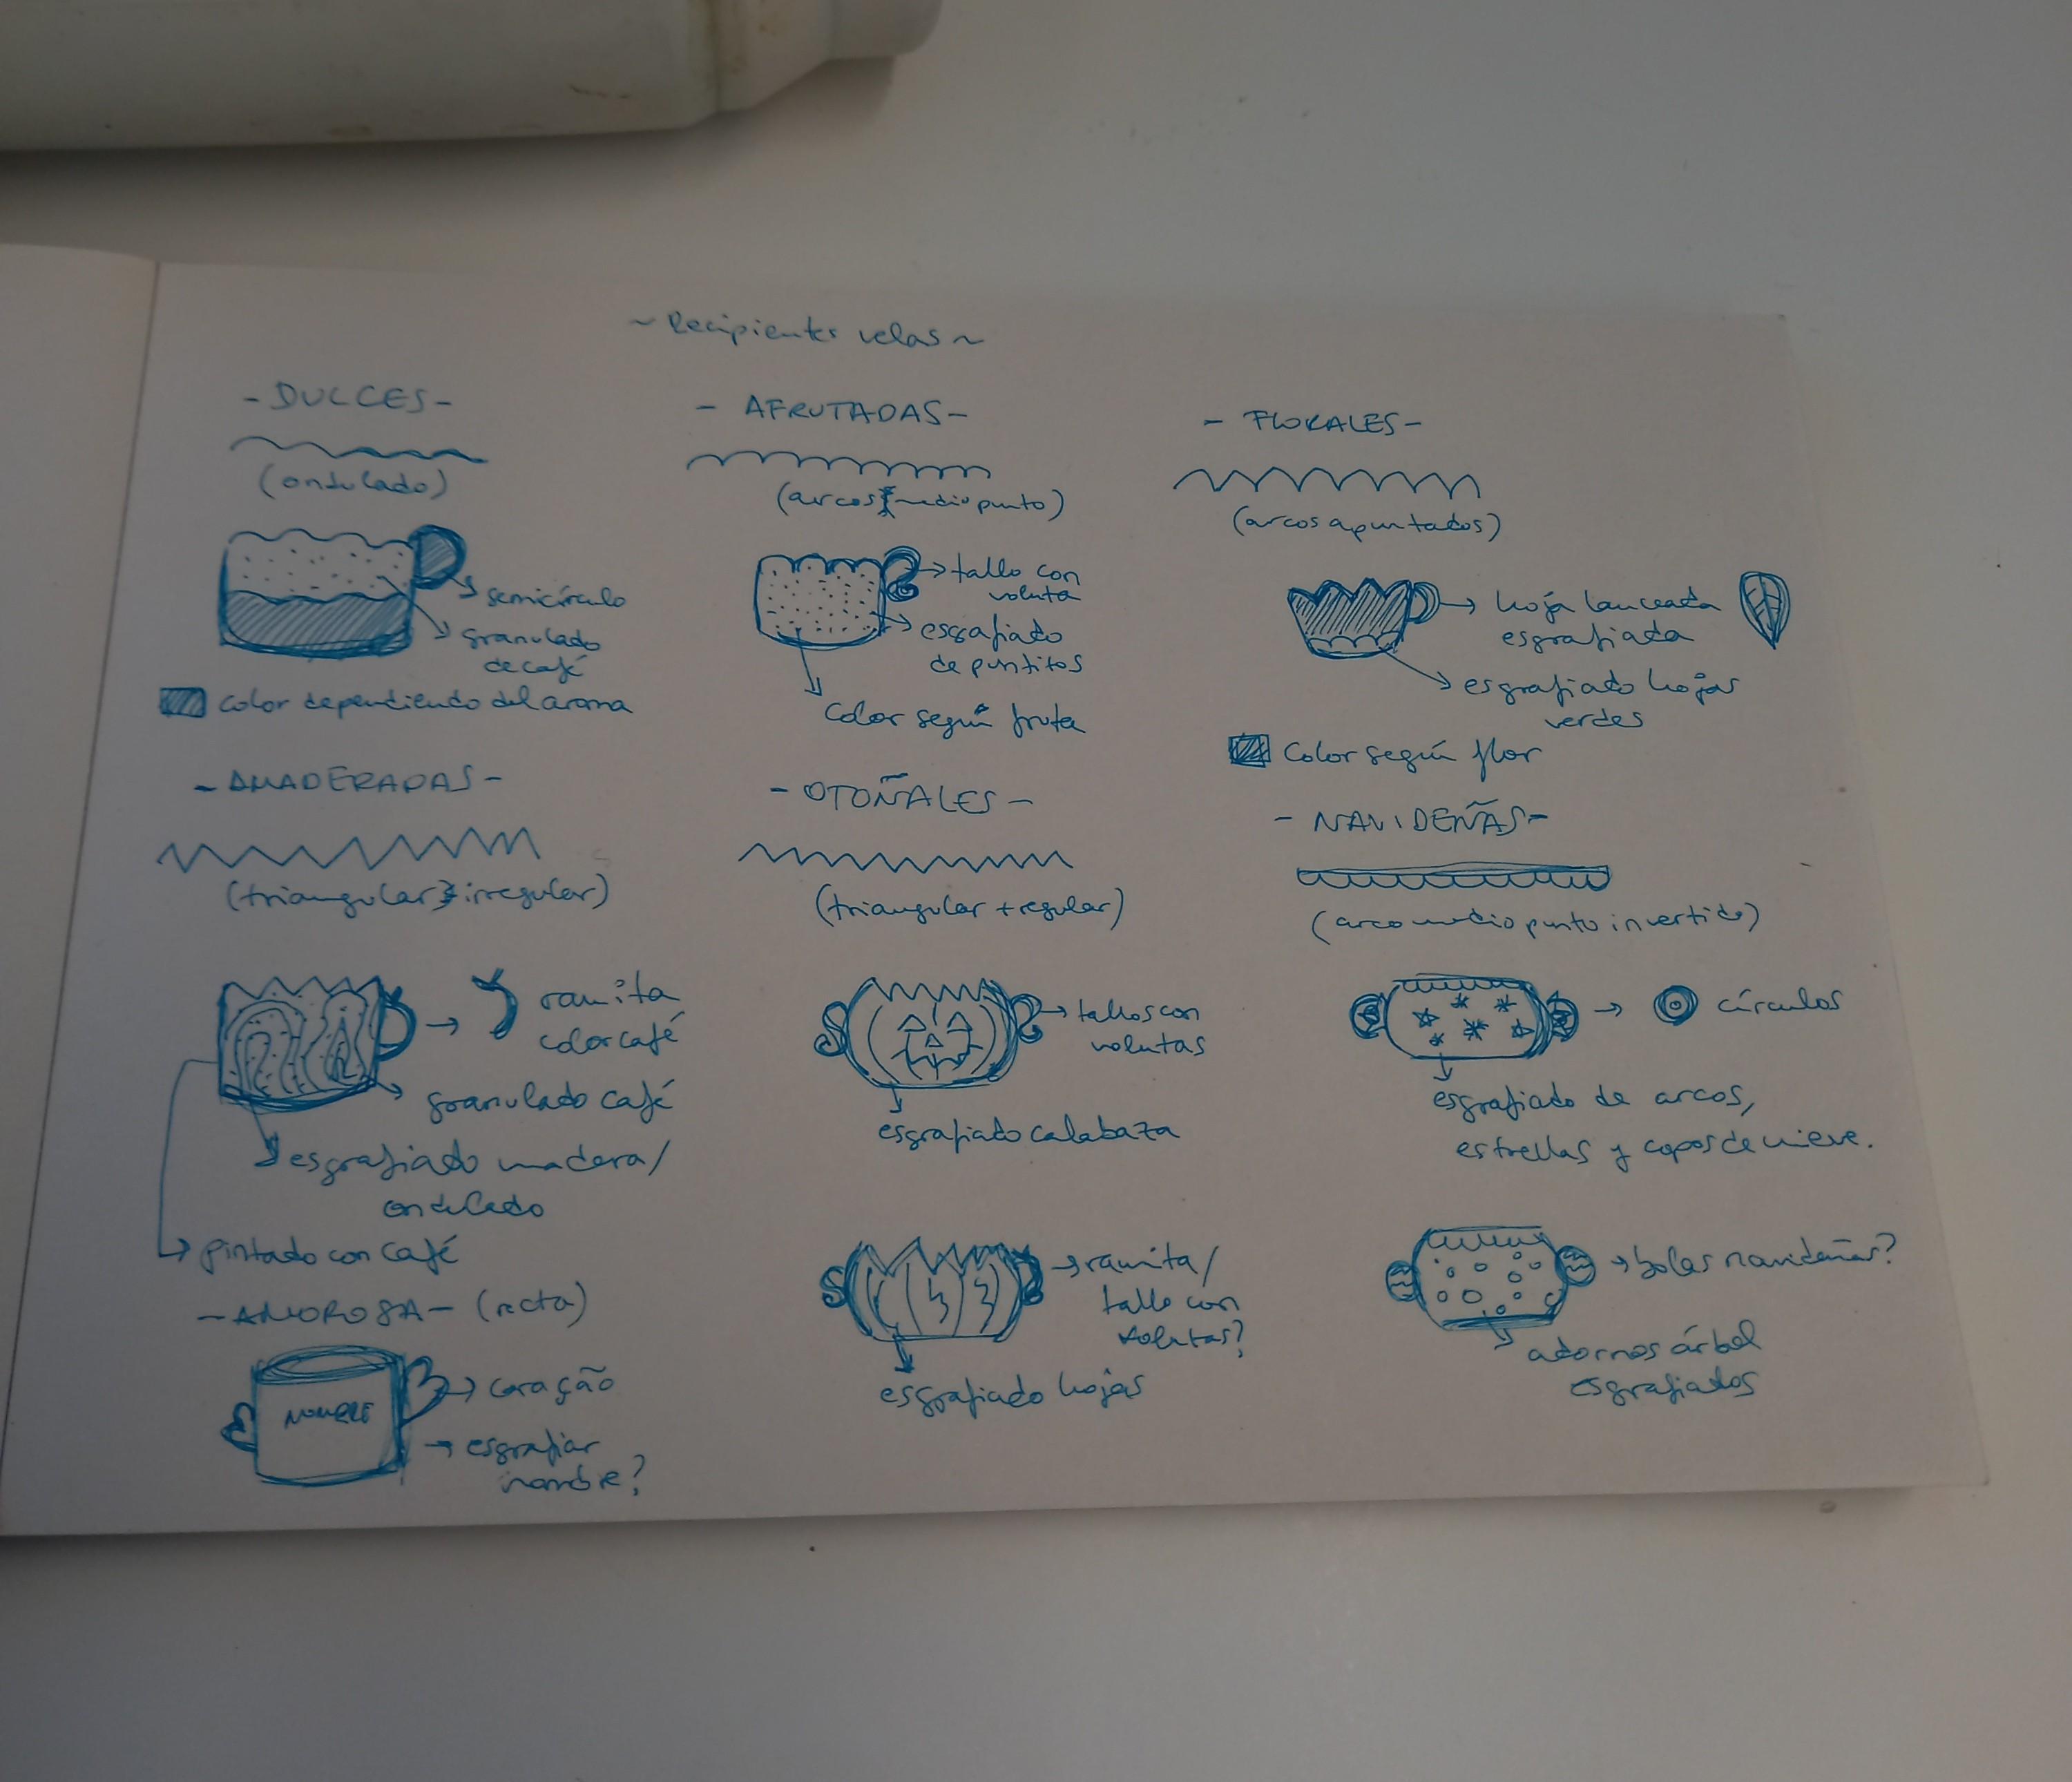 ~ Recipientes velas ~
- DULCES -
(ondulado)
semicírculo
granulado
de café
color dependiendo del aroma
- AFRUTADAS -
(arcos medio punto)
tallo con
voluta
esgrafiado
de puntitos
color según fruta
- FLORALES -
(arcos apuntados)
hoja lanceada
esgrafiada
esgrafiado hojas
verdes
color según flor
- AMADERADAS -
(triangular irregular)
ramita
color café
granulado café
esgrafiado madera/
ondulado
pintado con café
- OTOÑALES -
(triangular + regular)
tallos con
volutas
esgrafiado calabaza
ramita/
tallo con
volutas?
esgrafiado hojas
- NAVIDEÑAS -
(arco medio punto invertido)
círculos
esgrafiado de arcos,
estrellas y copos de nieve.
bolas navideñas?
adornos árbol
esgrafiados
- AMOROSA - (recta)
NOMBRE
coração
esgrafiar
nombre?